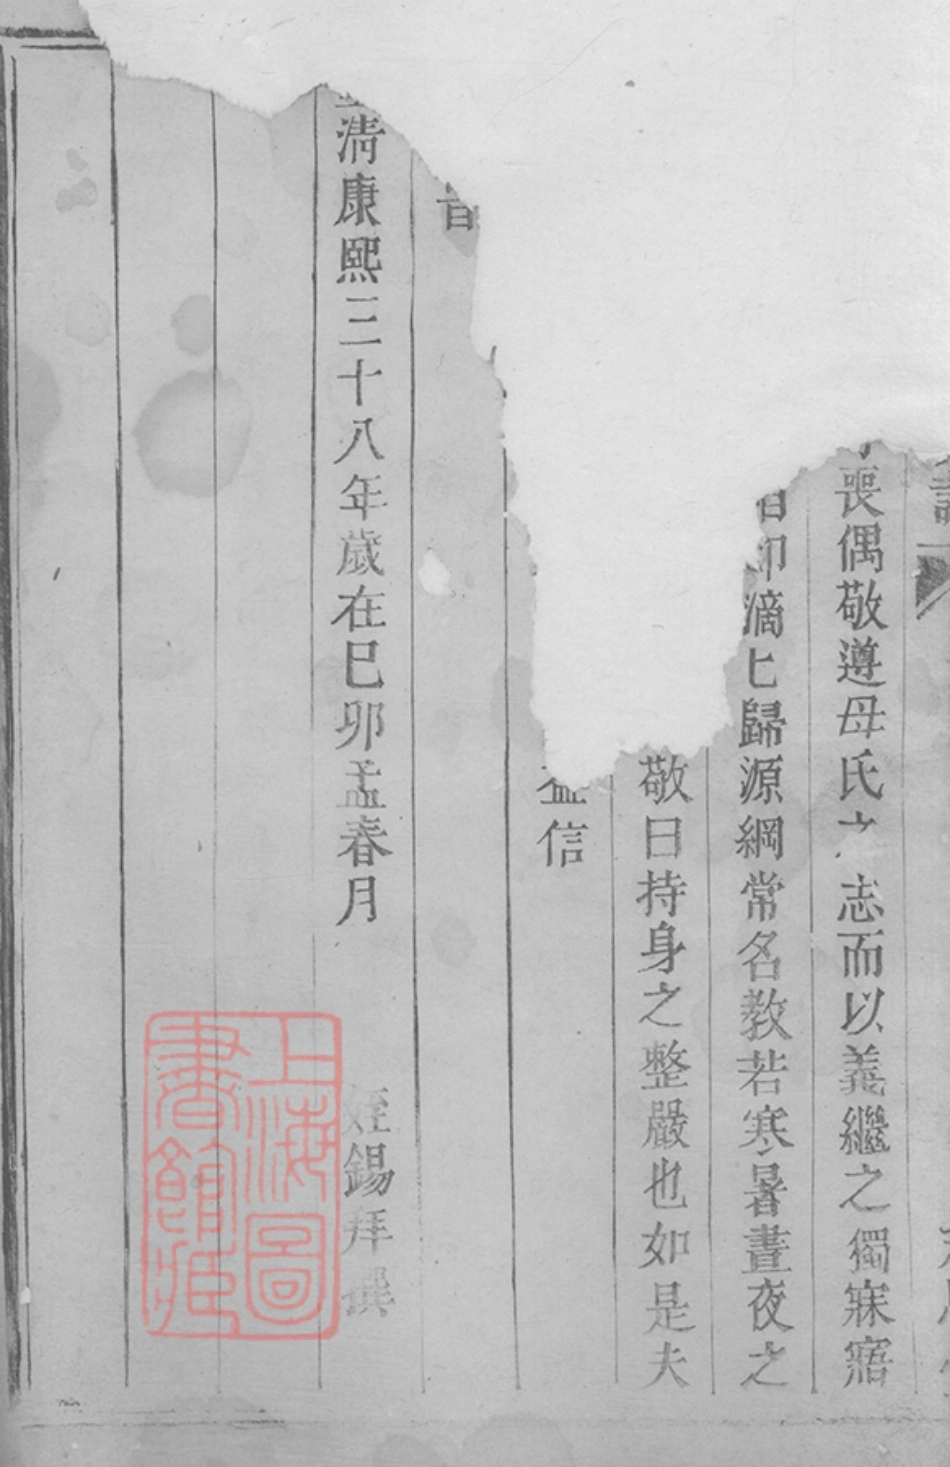 喪偶敬遵母氏之志而以義繼之獨寐寤
滴匕歸源綱常名教若寒暑晝夜之
敬曰持身之整嚴也如是夫
益信
清康熙三十八年歲在巳卯孟春月
姪錫拜撰
上海圖書館藏